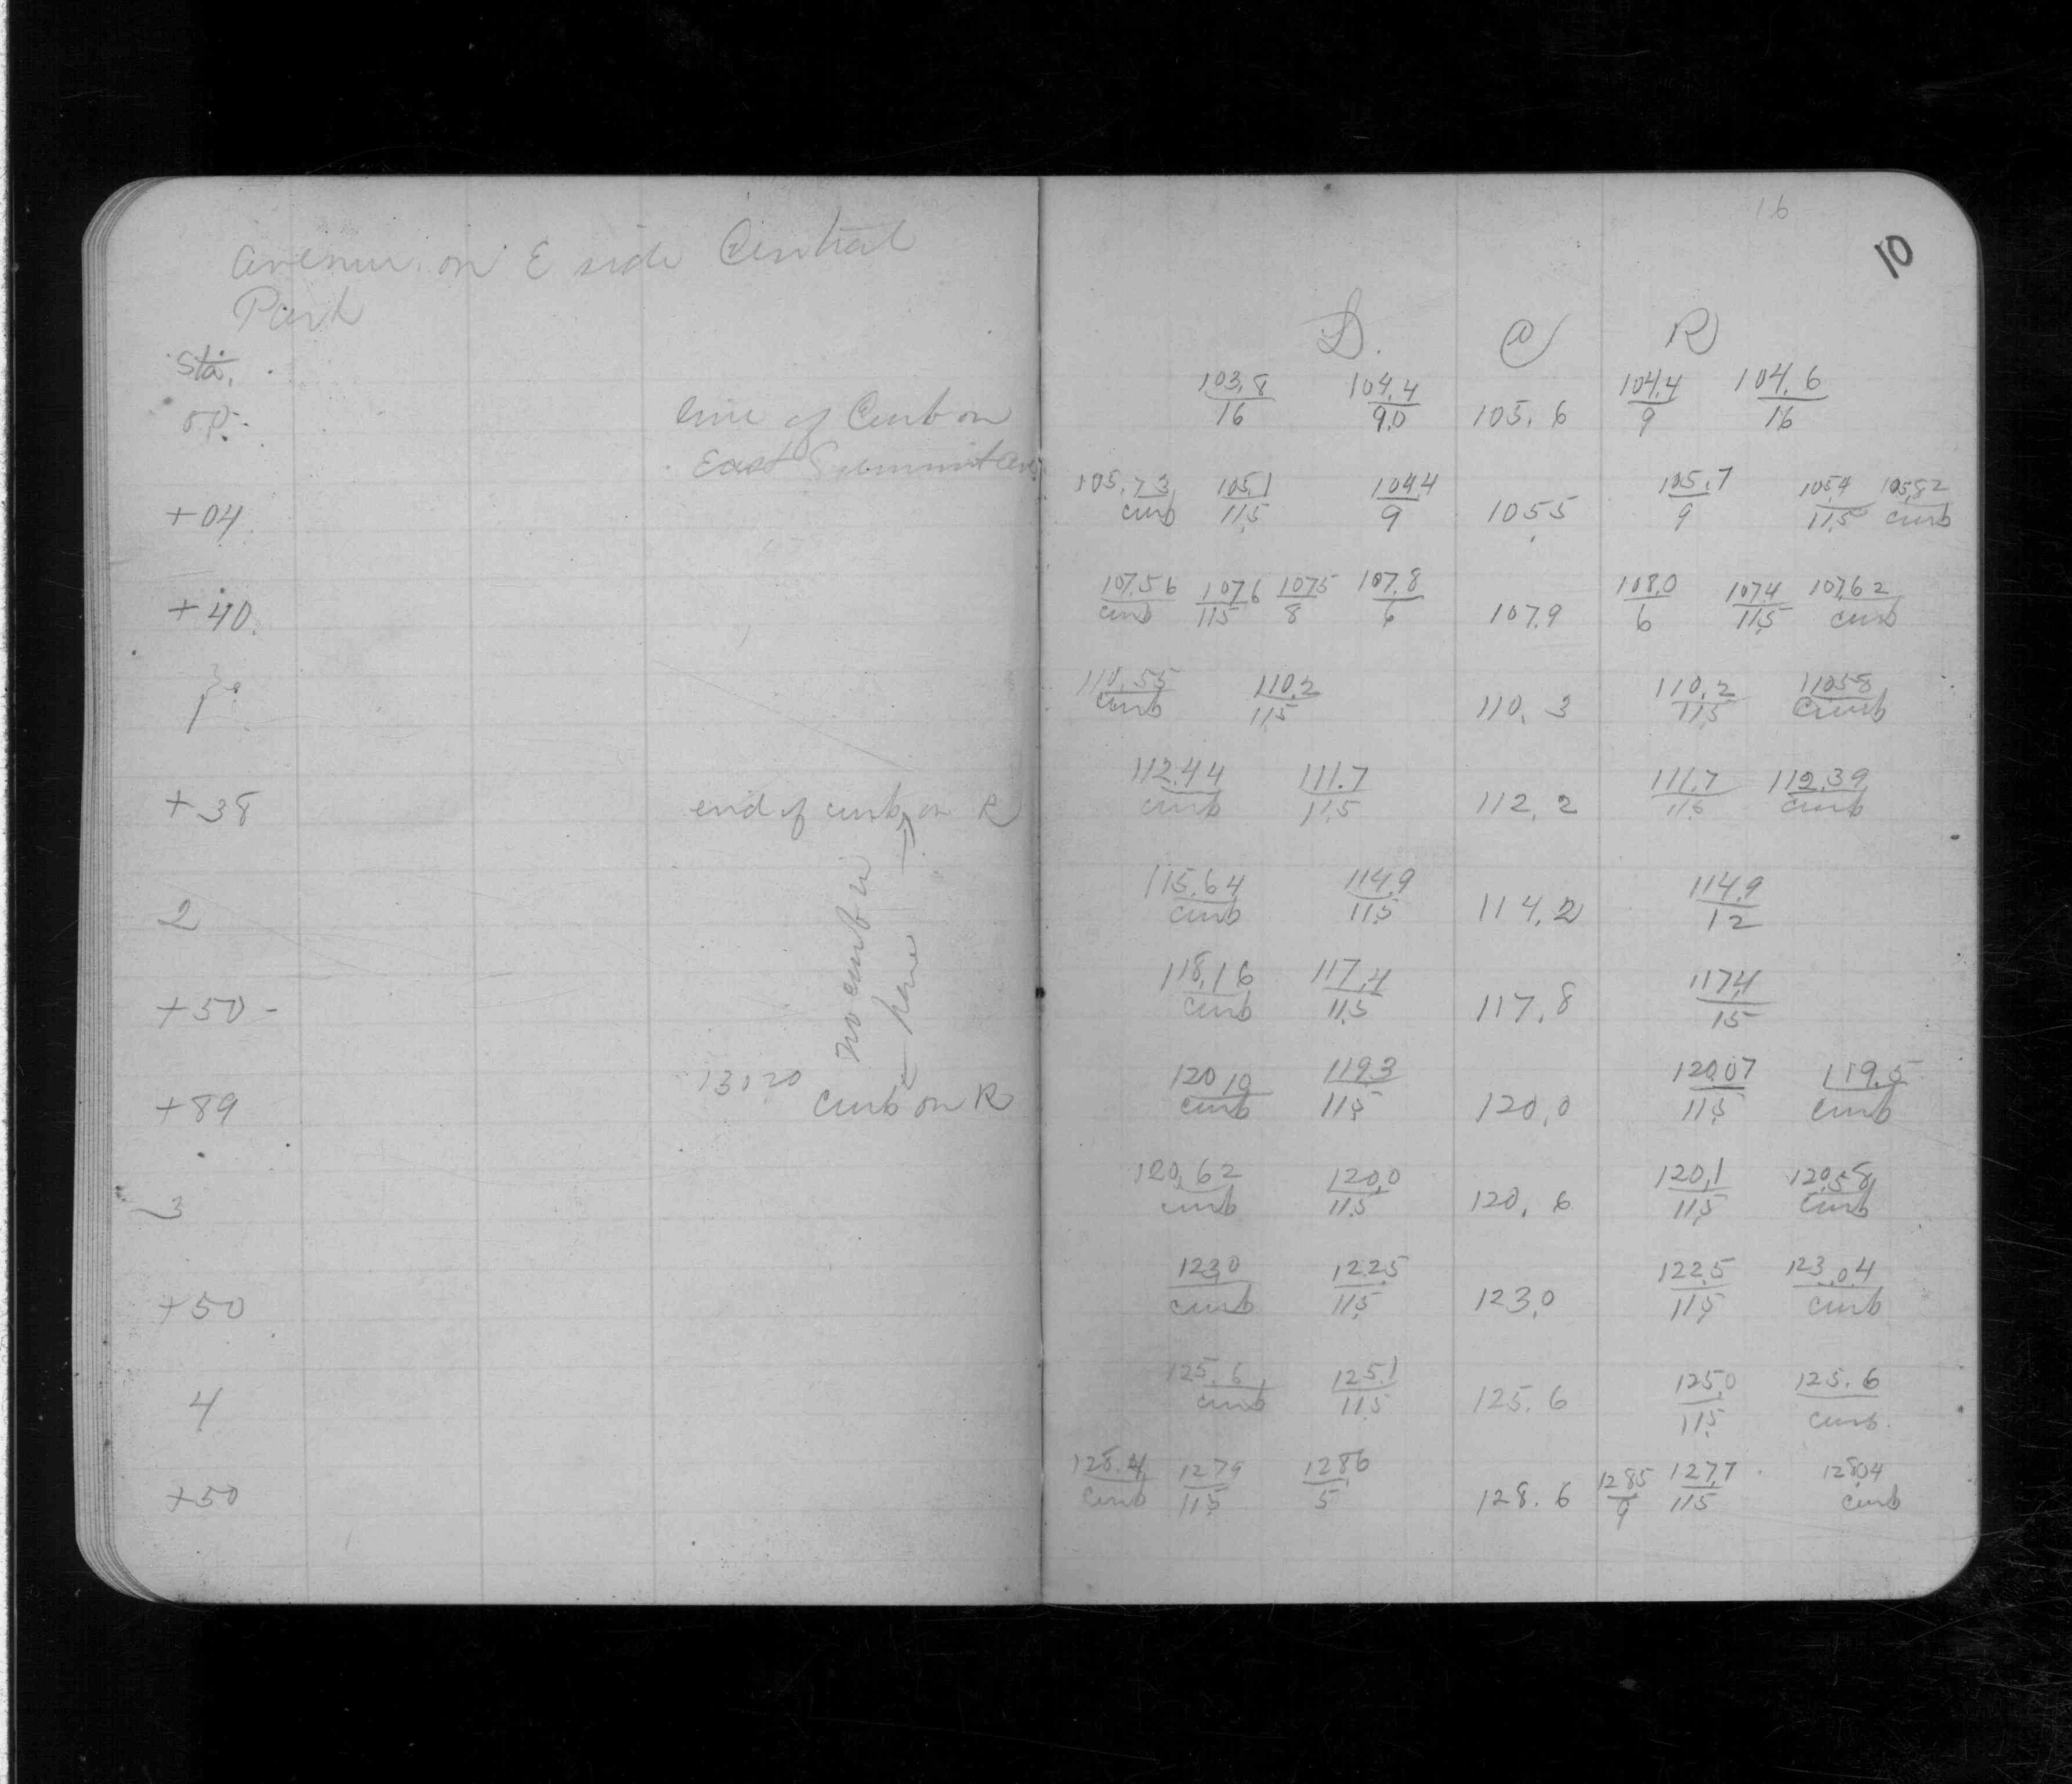 16
10
Avenue on E side Central
Park
Sta.
L. C R
00 line of Curb on 103.8/16 104.4/9.0 105.6 104.4/9 104.6/16
East Summit Ave
+04 105.73/curb 105.1/11.5 104.4/9 105.5 105.7/9 105.4/11.5 105.82/curb
+40. 107.56/curb 107.6/11.5 107.5/8 107.8/6 107.9 108.0/6 107.4/11.5 107.62/curb
1 110.55/curb 110.2/11.5 110.3 110.2/11.5 110.58/Curb
+38 end of curb on R 112.44/curb 111.7/11.5 112.2 111.7/11.5 112.39/curb
no curb in
here
2 115.64/curb 114.9/11.5 114.2 114.9/12
+50 - 118.16/curb 117.4/11.5 117.8 117.4/15
13120
+89 Curb on R 120.10/curb 119.3/11.5 120.0 120.07/11.5 119.5/curb
3 120.62/curb 120.0/11.5 120.6 120.1/11.5 120.58/Curb
+50 123.0/curb 122.5/11.5 123.0 122.5/11.5 123.04/curb
4 125.6/curb 125.1/11.5 125.6 125.0/11.5 125.6/curb.
+50 128.4/Curb 127.9/11.5 128.6/5 128.6 128.5/9 127.7/11.5 128.04/curb